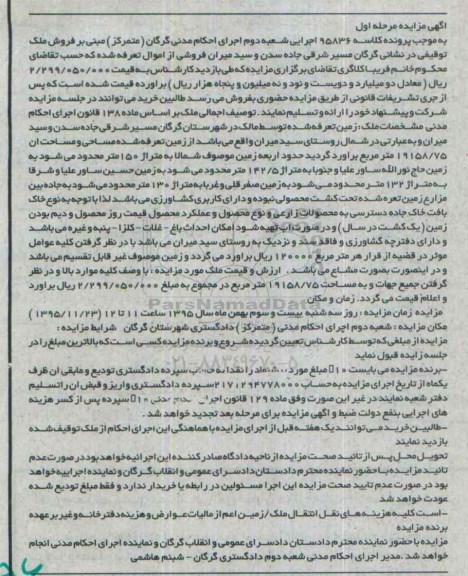 آگهی مزایده مرحله اول
به موجب پرونده کلاسه ۹۵۸۳۶ اجرایی شعبه دوم اجرای احکام مدنی گرگان (متمرکز) مبنی بر فروش ملک
توقیفی در نشانی گرگان مسیر شرقی جاده سدن و سید میران فروشی از اموال تعرفه شده که حسب تقاضای
محکوم خانم فریبا کلاگری تقاضای برگزاری مزایده که طی بازدید کارشناس به قیمت ۲/۲۹۹/۰۵۰/۰۰۰
ریال (معادل دو میلیارد و دویست و نود و نه میلیون و پنجاه هزار ریال) برآورده قیمت شده است که پس
از جری تشریفات قانونی از طریق مزایده حضوری بفروش می رسد طالبین خرید می توانند در جلسه مزایده
شرکت و پیشنهاد خود را ارائه و تسلیم نمایند. توصیف اجمالی ملک بر اساس ماده ۱۳۸ قانون اجرای احکام
مدنی مشخصات ملک: زمین تعرفه شده توسط مالک در شهرستان گرگان مسیر شرقی جاده سدن و سید
میران و به عبارتی در شمال روستای سید میران واقع می باشد از زمین تعرفه شده مساحی و مساحت آن
۱۹۱۵۸/۷۵ متر مربع برآورد گردید حدود اربعه زمین موصوف شمالا به متراژ ۱۵۰ متر محدود می شود به
زمین حاج نورالله ساور علیا و جنوبا به متراژ ۱۴۲/۵ متر محدود می شود به زمین حسین ساور علیا و شرقا
به متراژ ۱۳۲ متر محدود می شود به زمین صفر قلی و غربا به متراژ ۱۳۰ متر محدود می شود به جاده بین
مزارع زمین تعره شده تحت کشت محصولی نبوده و دارای کاربری کشاورزی می باشد لذا با توجه به نوع خاک
بافت خاک جاده دسترسی به محصولات زراعی و نوع محصول و عملکرد محصول قیمت روز محصول و دیم بودن
زمین (یک کشت در سال) و در صورت آب تهیه شود امکان احداث باغ - غلات - کلزا - پنبه و غیره می باشد
و دارای دفترچه کشاورزی و فاقد سند و نزدیک به روستای سید میران می باشد با در نظر گرفتن کلیه عوامل
موثر در قضیه از قرار هر متر مربع ۱۲۰۰۰۰ ریال برآورد می گردد و زمین موصوف غیر قابل تقسیم می باشد
و در اینصورت بصورت مشاع می باشد. ارزش و قیمت ملک مورد مزایده: با وصف کلیه موارد بالا و در نظر
گرفتن جمیع جهات و به مساحت ۱۹۱۵۸/۷۵ متر مربع در مجموع به مبلغ ۲/۲۹۹/۰۵۰/۰۰۰ ریال برآورد
و اعلام قیمت می گردد. زمان و مکان
مزایده زمان مزایده: روز سه شنبه بیست و سوم بهمن ماه سال ۱۳۹۵ ساعت ۱۱ تا ۱۲ (۱۳۹۵/۱۱/۲۳)
مکان مزایده: شعبه دوم اجرای احکام مدنی (متمرکز) دادگستری شهرستان گرگان شرایط مزایده:
مزایده از مبلغی که توسط کارشناس تعیین گردیده شروع و برنده مزایده کسی است که بالاترین مبلغ را در
جلسه مزایده قبول نماید
-برنده مزایده می بایست ۱۰٪ مبلغ مورد را نقدا به حساب سپرده دادگستری تودیع و مابقی آن ظرف
یکماه از تاریخ اجرای مزایده به حساب ۲۱۷۱۲۹۴۷۷۸۰۰۰ سپرده دادگستری واریز و قبض آن را تسلیم
دفتر شعبه نمایند در غیر این صورت وفق ماده ۱۲۹ قانون اجرای مدنی ۱۰٪ سپرده پس از کسر هزینه
های اجرایی بنفع دولت ضبط و آگهی مزایده برای مرحله بعد تجدید خواهد شد.
-طالبین خرید می توانند یک هفته قبل از اجرای مزایده با هماهنگی این اجرای احکام از ملک توقیف شده
بازدید نمایند
تحویل محل پس از تائید صحت مزایده از ناحیه دادگاه صادر کننده این اجرائیه خواهد بود در صورت عدم
تائید مزایده با حضور نماینده محترم دادستان دادسرای عمومی و انقلاب گرگان و نماینده اجراییه خواهد
بود در صورت عدم تایید صحت مزایده این اجرا مسئولین در رابطه با خریدار ندارد و فقط مبلغ تودیع شده
عودت خواهد شد
-است کلیه هزینه های نقل انتقال ملک / زمین اعم از مالیات عوارض و هزینه دفترخانه و غیر بر عهده
برنده مزایده
مزایده با حضور نماینده محترم دادستان دادسرای عمومی و انقلاب گرگان و نماینده اجرای احکام مدنی انجام
خواهد شد. مدیر اجرای احکام مدنی شعبه دوم دادگستری گرگان - شبنم هاشمی
ParsNamadData
۰۲۱-۸۸۳۴۹۶۷۰-۵